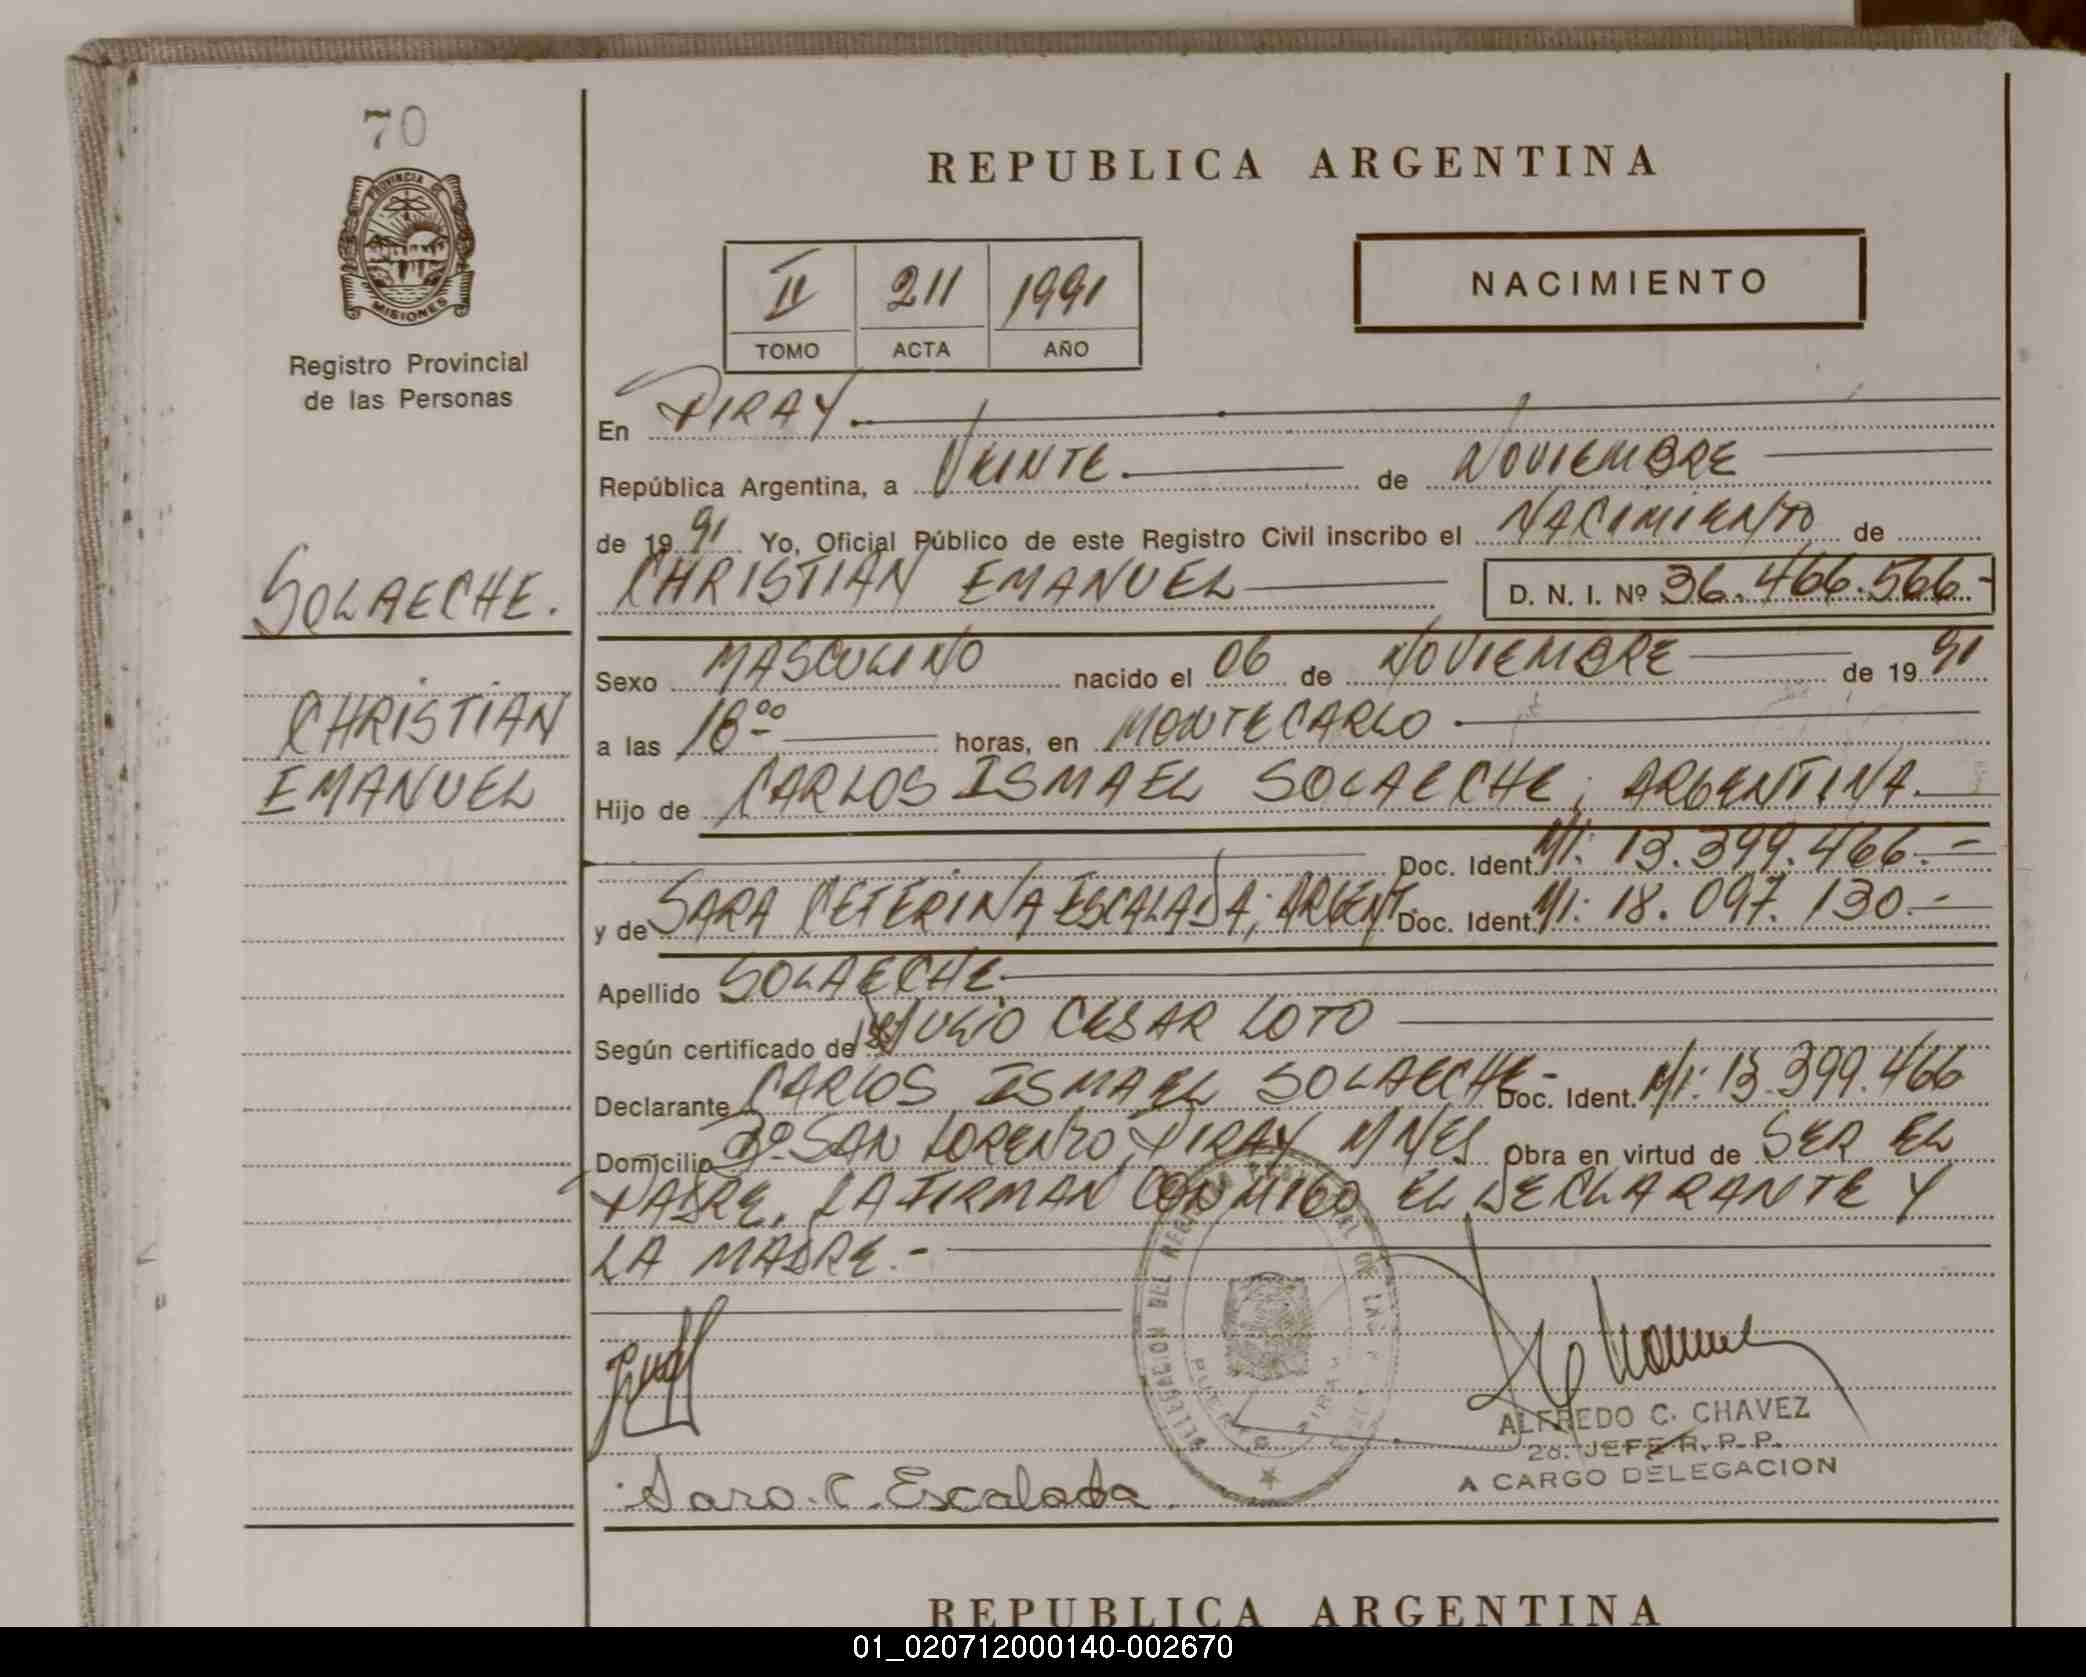 70
PROVINCIA DE
MISIONES
Registro Provincial
de las Personas
SOLAECHE.
CHRISTIAN
EMANUEL
REPUBLICA ARGENTINA
NACIMIENTO
II 211 1991
TOMO ACTA AÑO
En PIRAY
República Argentina, a VEINTE de NOVIEMBRE
de 1991 Yo, Oficial Público de este Registro Civil inscribo el NACIMIENTO de
CHRISTIAN EMANUEL D. N. I. Nº 36.466.566-
Sexo MASCULINO nacido el 06 de NOVIEMBRE de 1991
a las 18 00 horas, en MONTECARLO
Hijo de CARLOS ISMAEL SOLAECHE; ARGENTINA.
Doc. Ident. MI: 13.399.466.-
y de SARA CETERINA ESCALADA; ARGENT. Doc. Ident. MI: 18.097.130.-
Apellido SOLAECHE.
Según certificado de JULIO CESAR LOTO
Declarante CARLOS ISMAEL SOLAECHE- Doc. Ident. MI: 13.399.466
Domicilio Bº SAN LORENZO, PIRAY MNES Obra en virtud de SER EL
PADRE. LA FIRMAN CONMIGO EL DECLARANTE Y
LA MADRE.-
DELEGACION DEL DE LAS
ALFREDO C. CHAVEZ
2do. JEFE R. P. P.
A CARGO DELEGACION
Sara C. Escalada
REPUBLICA ARGENTINA
01_020712000140-002670